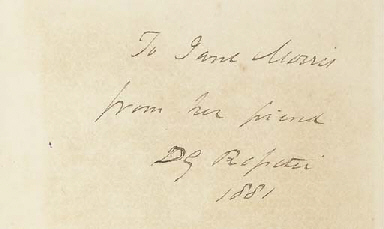 To Jane Morris
from her friend
DG Rossetti
1881